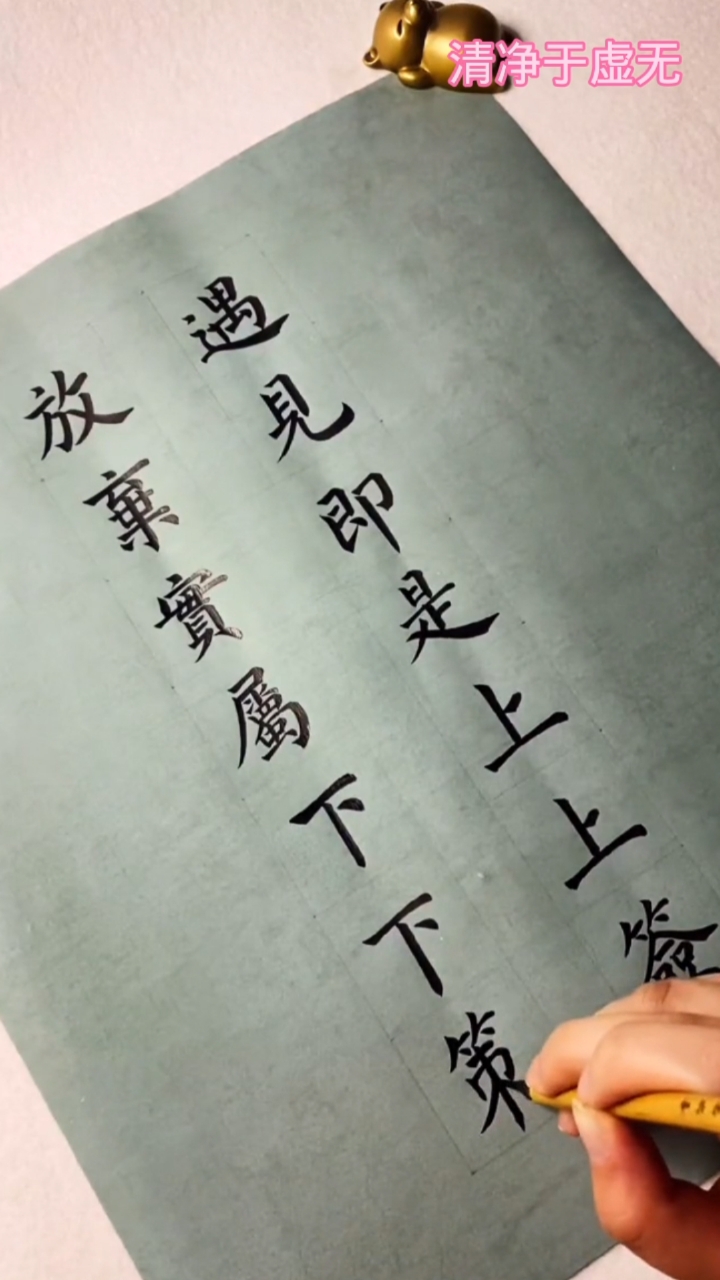 清净于虚无
遇見即是上上簽
放棄實屬下下策